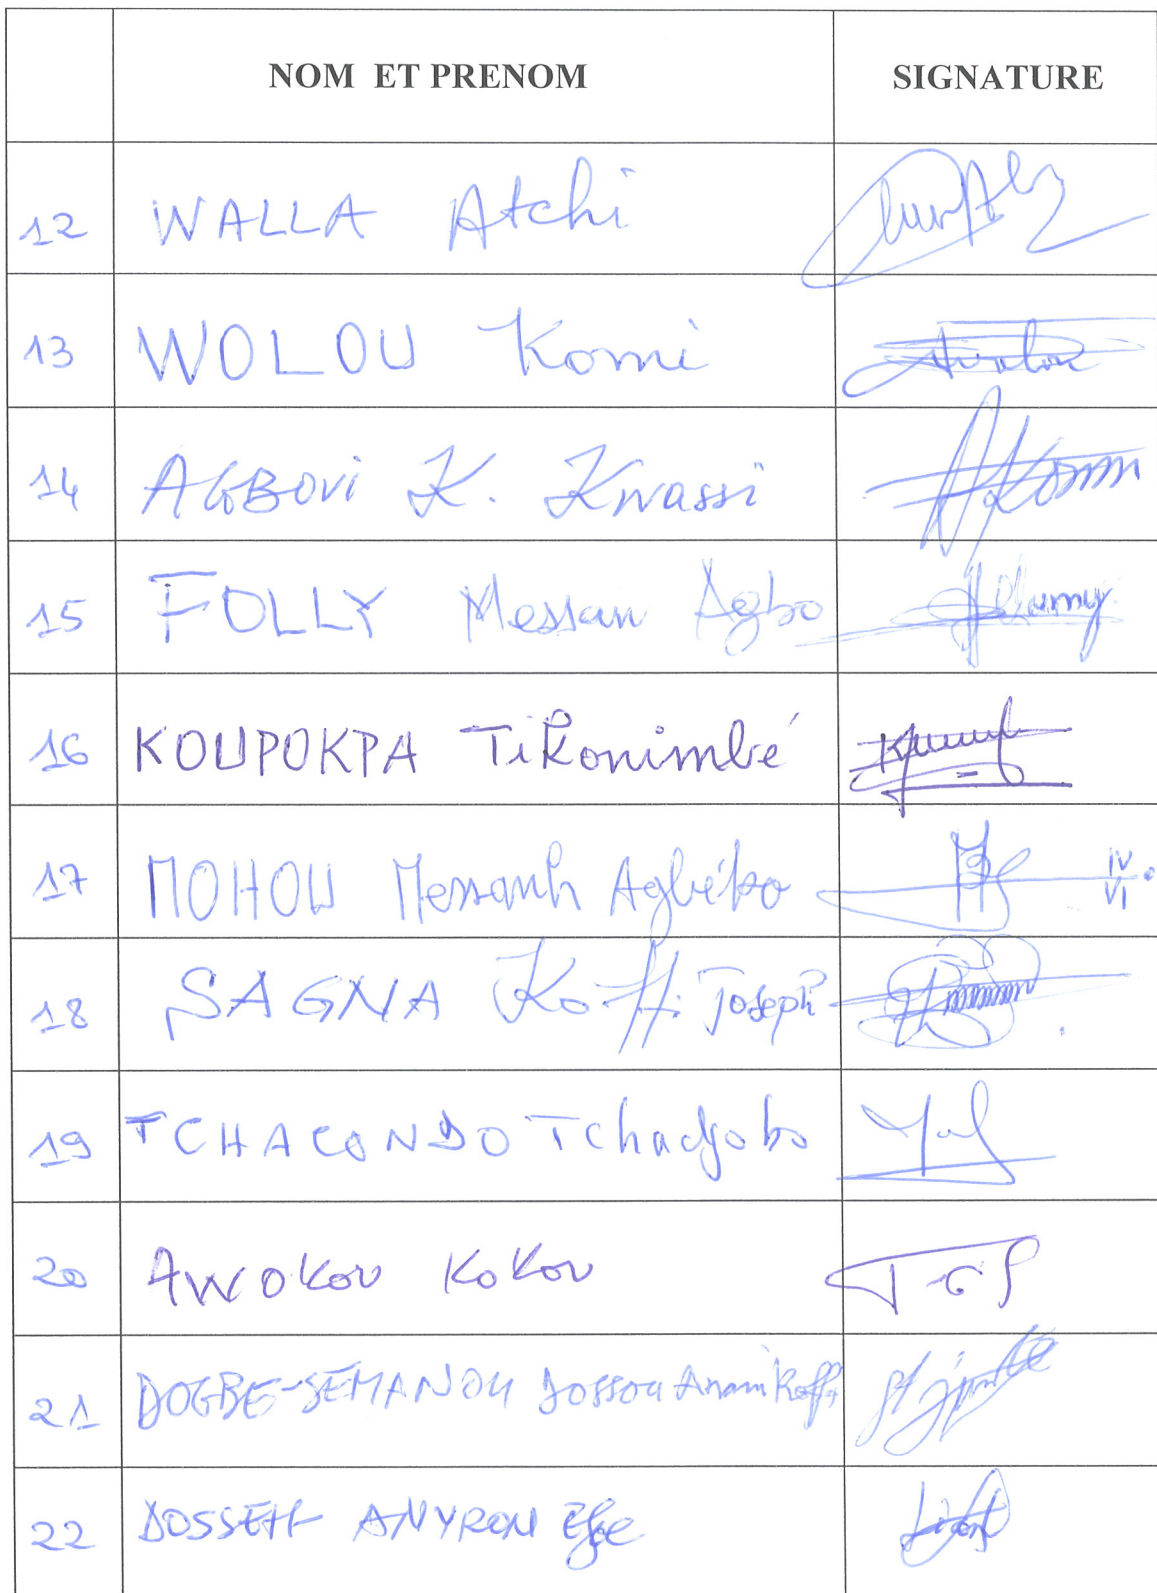 NOM ET PRENOM SIGNATURE
12 WALLA Atchi
13 WOLOU Komi
14 AGBOVI K. Kwassi
15 FOLLY Messan Agbo
16 KOUPOKPA Tikonimbé
17 MOHOU Messanh Agbéko
18 SAGNA Koffi Joseph
19 TCHACONDO Tchadjobo
20 AWOKOU KOKOU
21 DOGBE-SEMANOU Dossou Anani Koffi
22 DOSSEH ANYRON